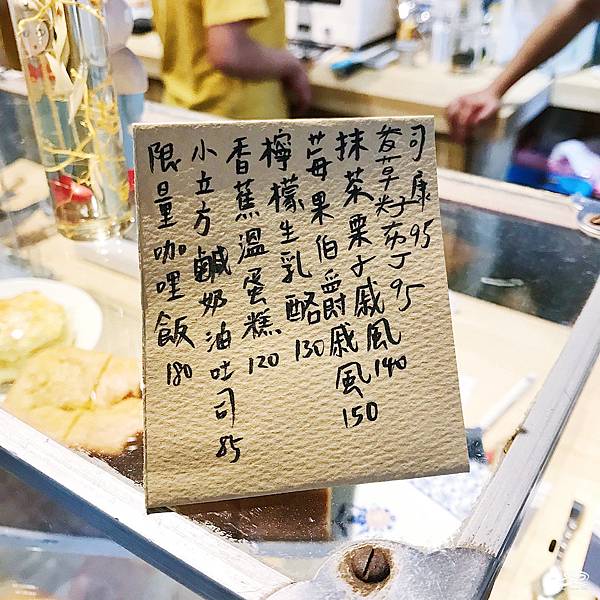 司康95
香草籽布丁95
抹茶栗子戚風140
莓果伯爵戚風150
檸檬生乳酪130
香蕉溫蛋糕120
小立方鹹奶油吐司85
限量咖哩飯180